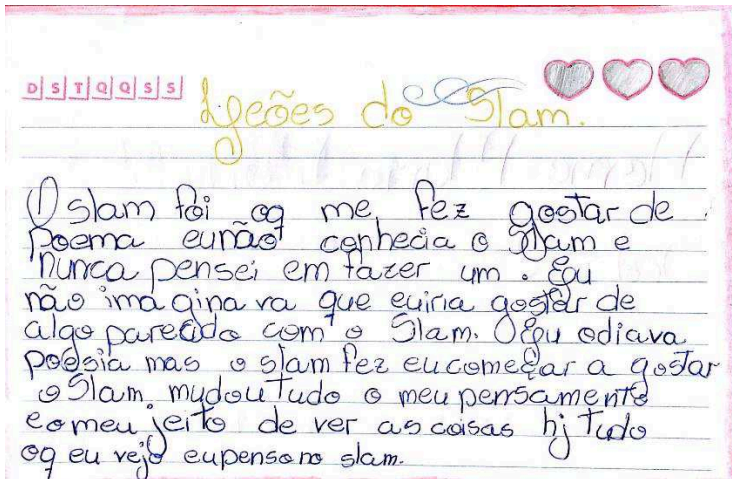 D S T Q Q S S
Lyeões do Slam.
O slam foi oq me fez gostar de
poema eu não conhecia o Slam e
nunca pensei em fazer um. Eu
não imaginava que eu iria gostar de
algo parecido com o Slam. Eu odiava
poesia mas o slam fez eu começar a gostar
o Slam mudou tudo o meu pensamento
e o meu jeito de ver as coisas hj tudo
oq eu vejo eu penso no slam.